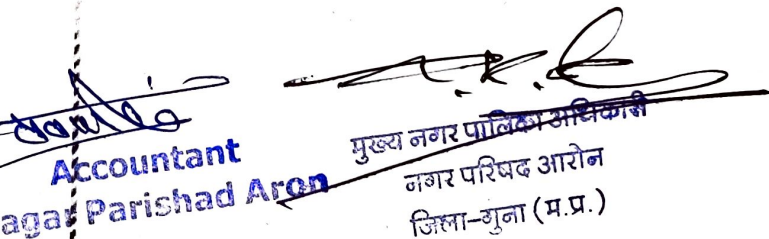 Accountant
agar Parishad Aron
मुख्य नगर पालिका अधिकारी
नगर परिषद आरोन
जिला-गुना (म.प्र.)